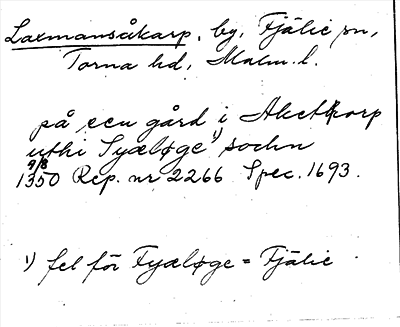 Laxmansåkarp, by, Fjälie sn,
Torna hd, Malm. l.
på een gård i Aketorp
uthi Syæløge 1) sochn
9/8
1350 Rep. nr 2266 Spec. 1693.
1) fel för Fyæløge = Fjälie